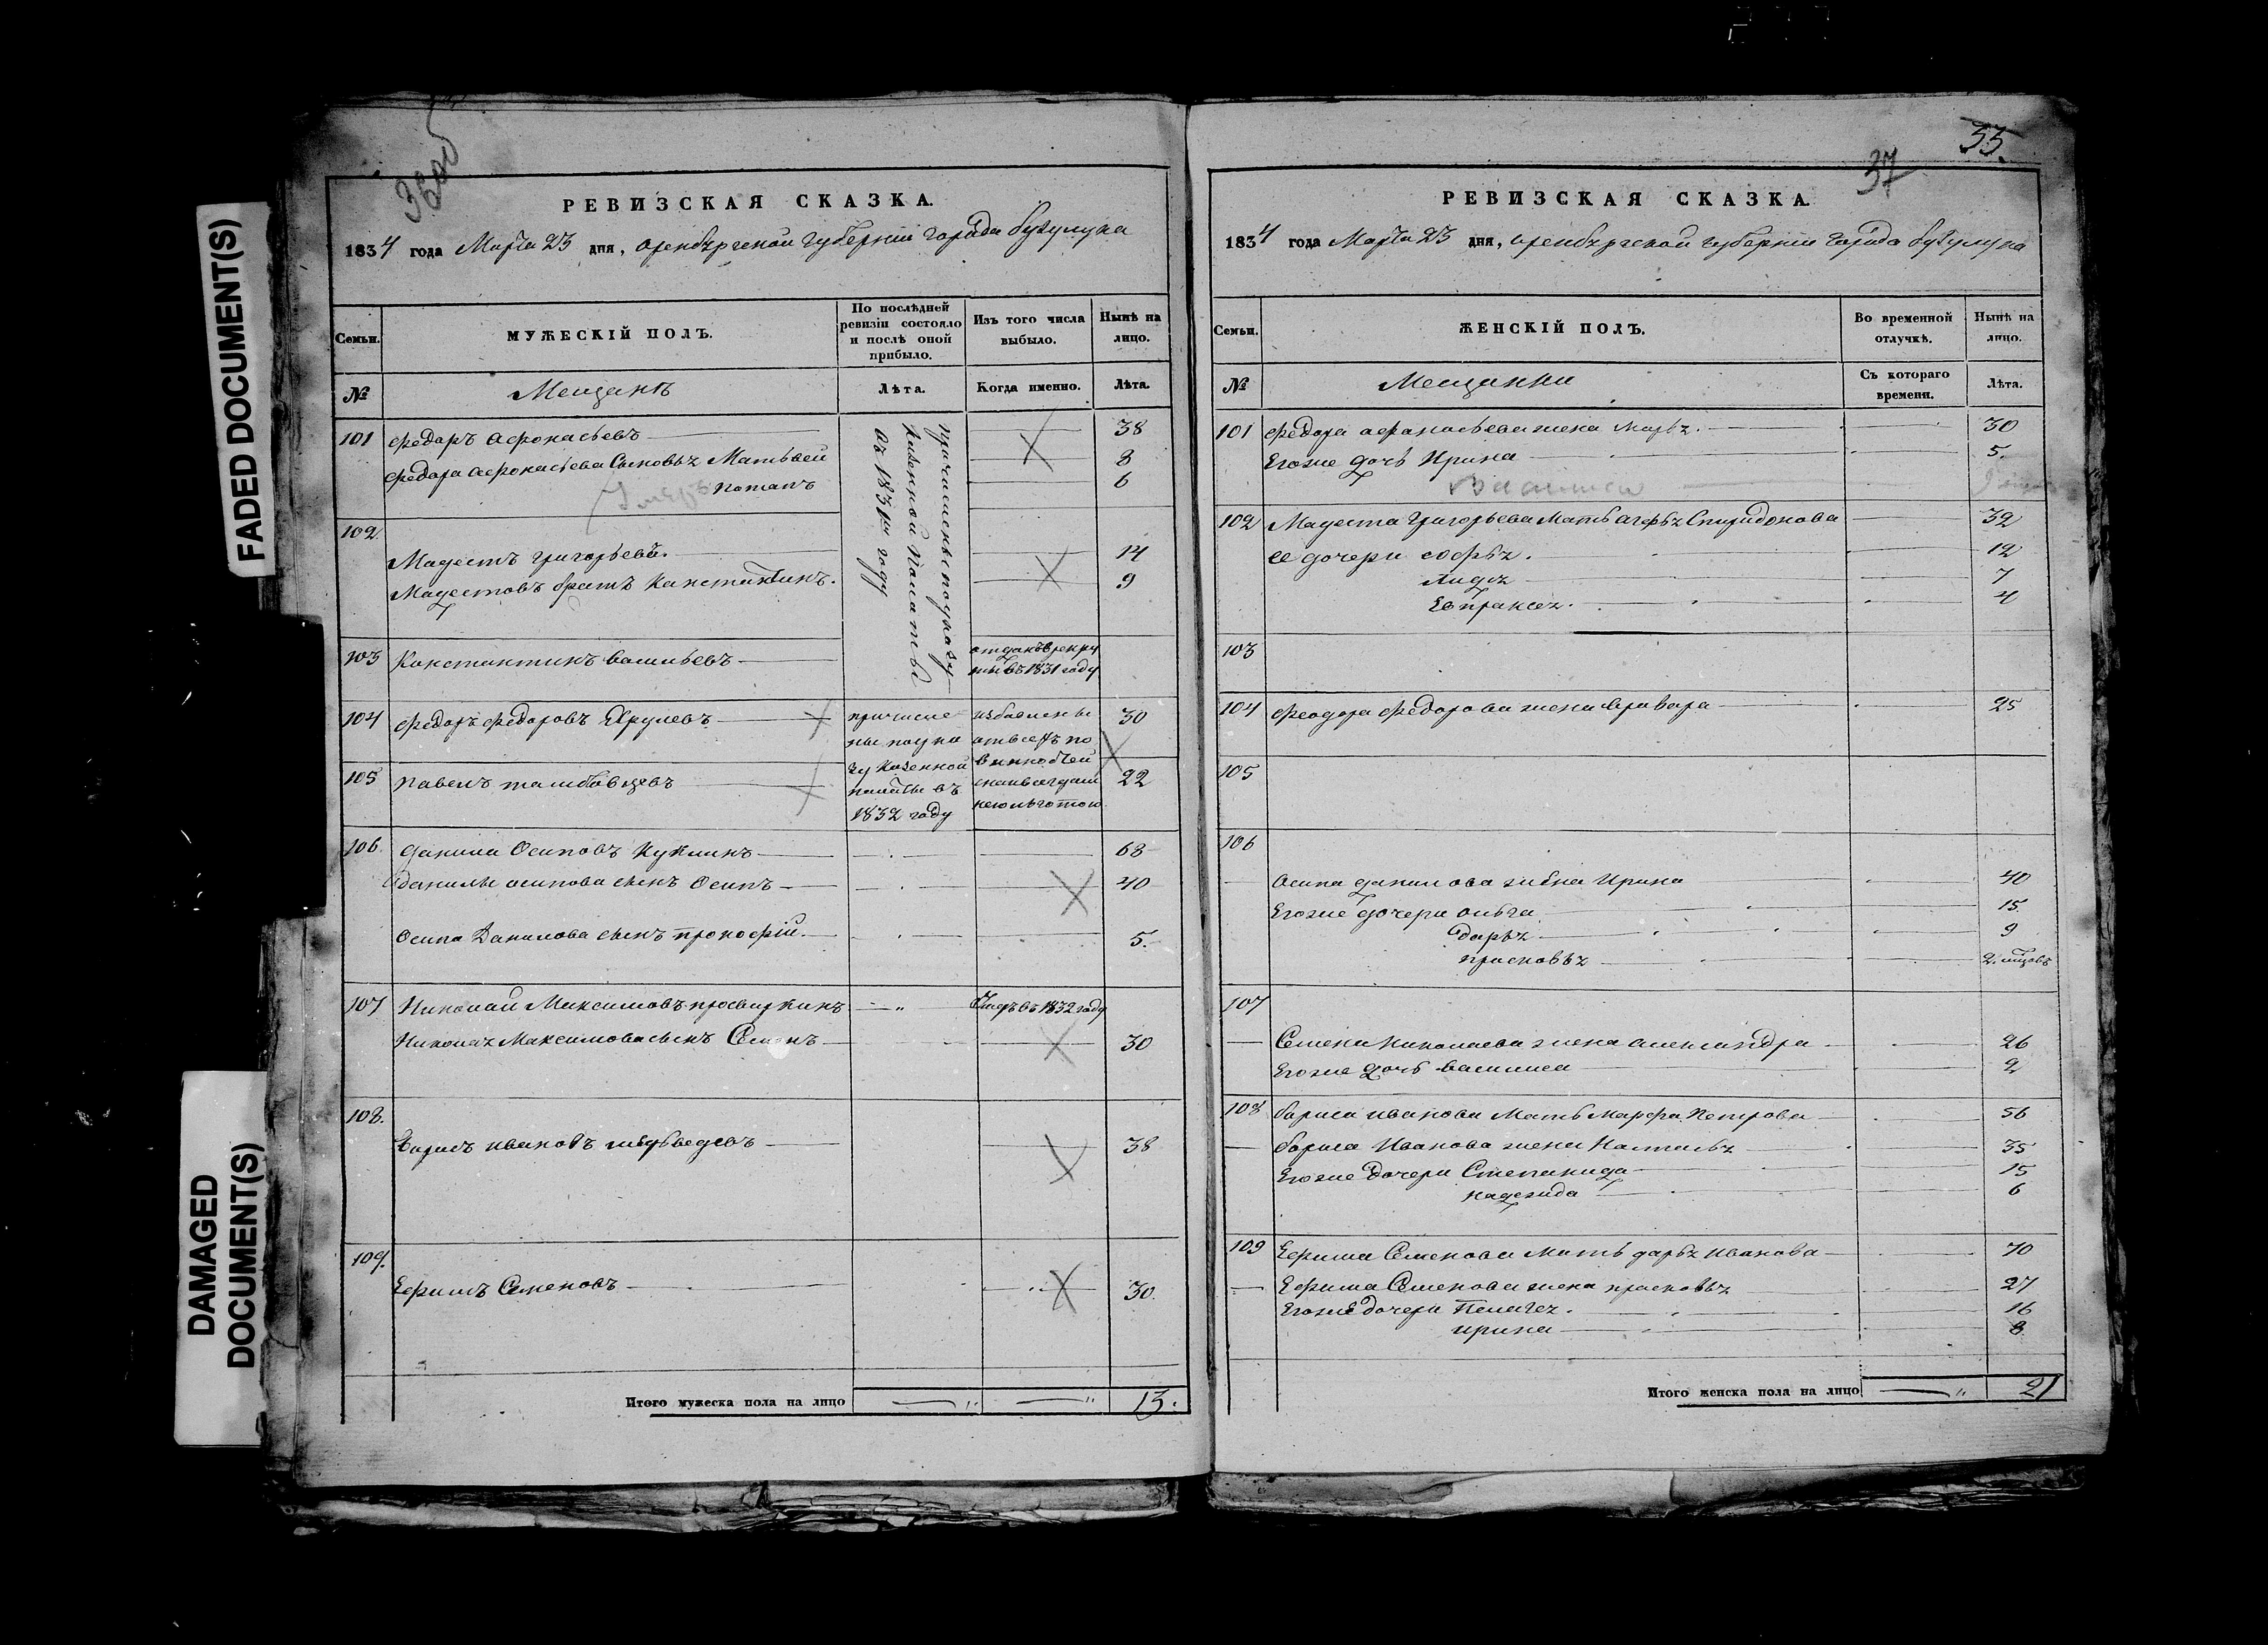 FADED DOCUMENT(S)
DAMAGED
DOCUMENT(S)
РЕВИЗСКАЯ СКАЗКА.
1834 года Марта 23 дня, Оренбургской губернии города Бузулука
Семьи.
МУЖЕСКІЙ ПОЛЪ.
По послѣдней
ревизіи состояло
и послѣ оной
прибыло.
Изъ того числа
выбыло.
Нынѣ на
лицо.
№
Мещанъ
Лѣта.
Когда именно.
Лѣта.
причислены по указу
казенной Палаты
въ 1831м году
101 Федоръ Афонасьевъ 38
Федора Афонасьева Сыновья Матьвей 8
Потапъ 6
Умеръ
102
Мадестъ Григорьевъ. 14
Мадестовъ братъ Канстантинъ. 9
103 Канстантинъ Васильевъ отданъ в рекру
ты въ 1831 году
104 Федоръ Федоровъ причисле избавлены 30
ны по ука отъ всехъ по
105 Павелъ Тамбовцевъ зу Казенной винностей 22
палаты въ
1832 году
106 Данила Осиповъ 68
Данилы Осипова сынъ Осипъ 40
Осипа Данилова сынъ Прокофій 5.
107 Николай Максимовъ Просвиркинъ Умеръ въ 1832 году
Николая Максимова сынъ Семенъ 30
108.
Борисъ Ивановъ Медведевъ 38
109.
Ефимъ Семеновъ 30.
Итого мужеска пола на лицо 13.
33.
37
РЕВИЗСКАЯ СКАЗКА.
1834 года Марта 23 дня, Оренбургской губернии города Бузулука
Семьи.
ЖЕНСКІЙ ПОЛЪ.
Во временной
отлучкѣ.
Нынѣ на
лицо.
№
Мещанки
Съ котораго
времени.
Лѣта.
101 Федора Афанасьева жена Марья. 30
Его же дочь Ирина 5.
Василиса
102 Мадеста Григорьева Мать Агафья Спиридонова 32
Ее дочери Софья. 12
Лидия 7
Евпраксея. 4
103
104 Феодора Федорова жена Варвара 25
105
106
Осипа Данилова жена Ирина 40
Его же дочери Ольга 15.
Дарья 9
Прасковья
107
Семена Николаева жена Александра 26
Его же дочь Василиса 2
108 Бориса Иванова Мать Марфа Петрова 56
Бориса Иванова жена Наталья 35
Его же дочери Степанида 15
Надежда 6
109 Ефима Семенова Мать Дарья Иванова 70
Ефима Семенова жена Прасковья 27
Его же дочери Пелагея. 16
Ирина 8
Итого женска пола на лицо 21